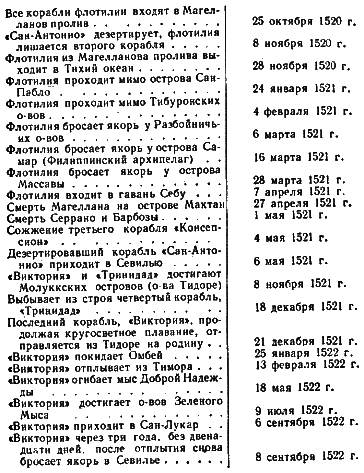 Все корабли флотилии входят в Магел-
ланов пролив . . . . . . . . . . . 25 октября 1520 г.
«Сан-Антонио» дезертирует, флотилия
лишается второго корабля . . . . 8 ноября 1520 г.
Флотилия из Магелланова пролива вы-
ходит в Тихий океан . . . . . . . 28 ноября 1520 г.
Флотилия проходит мимо острова Сан-
Пабло . . . . . . . . . . . . . . 24 января 1521 г.
Флотилия проходит мимо Тибуронских
о-вов . . . . . . . . . . . . . . 4 февраля 1521 г.
Флотилия бросает якорь у Разбойничь-
их о-вов . . . . . . . . . . . . . 6 марта 1521 г.
Флотилия бросает якорь у острова Са-
мар (Филиппинский архипелаг) . . . 16 марта 1521 г.
Флотилия бросает якорь у острова
Массавы . . . . . . . . . . . . . 28 марта 1521 г.
Флотилия входит в гавань Себу . . . 7 апреля 1521 г.
Смерть Магеллана на острове Мактан 27 апреля 1521 г.
Смерть Серрано и Барбозы . . . . . 1 мая 1521 г.
Сожжение третьего корабля «Консеп-
сион» . . . . . . . . . . . . . . 4 мая 1521 г.
Дезертировавший корабль «Сан-Анто-
нио» приходит в Севилью . . . . . 6 мая 1521 г.
«Виктория» и «Тринидад» достигают
Молуккских островов (о-ва Тидоре) 8 ноября 1521 г.
Выбывает из строя четвертый корабль,
«Тринидад» . . . . . . . . . . . . 18 декабря 1521 г.
Последний корабль, «Виктория», про-
должая кругосветное плавание, от-
правляется из Тидоре на родину . . 21 декабря 1521 г.
«Виктория» покидает Омбей . . . . . 25 января 1522 г.
«Виктория» отплывает из Тимора . . . 13 февраля 1522 г.
«Виктория» огибает мыс Доброй Надеж-
ды . . . . . . . . . . . . . . . . 18 мая 1522 г.
«Виктория» достигает о-вов Зеленого
Мыса . . . . . . . . . . . . . . . 9 июля 1522 г.
«Виктория» приходит в Сан-Лукар . . 6 сентября 1522 г.
«Виктория» через три года, без двена-
дцати дней, после отплытия снова
бросает якорь в Севилье . . . . . . 8 сентября 1522 г.